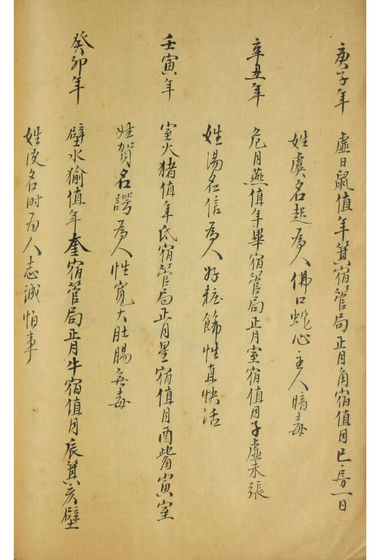 庚子年　虛日鼠值年箕宿管局正月角宿值月巳房一日
姓虞名起為人佛口蛇心主人暗毒
辛丑年　危月燕值年畢宿管局正月室宿值月子虛未張
姓湯名信為人好粧飾性直快活
壬寅年　室火猪值年氐宿管局正月星宿值月酉觜寅室
姓賀名諤為人性寬大肚腸無毒
癸卯年　壁水㺄值年奎宿管局正月牛宿值月辰箕亥壁
姓皮名時為人志誠怕事